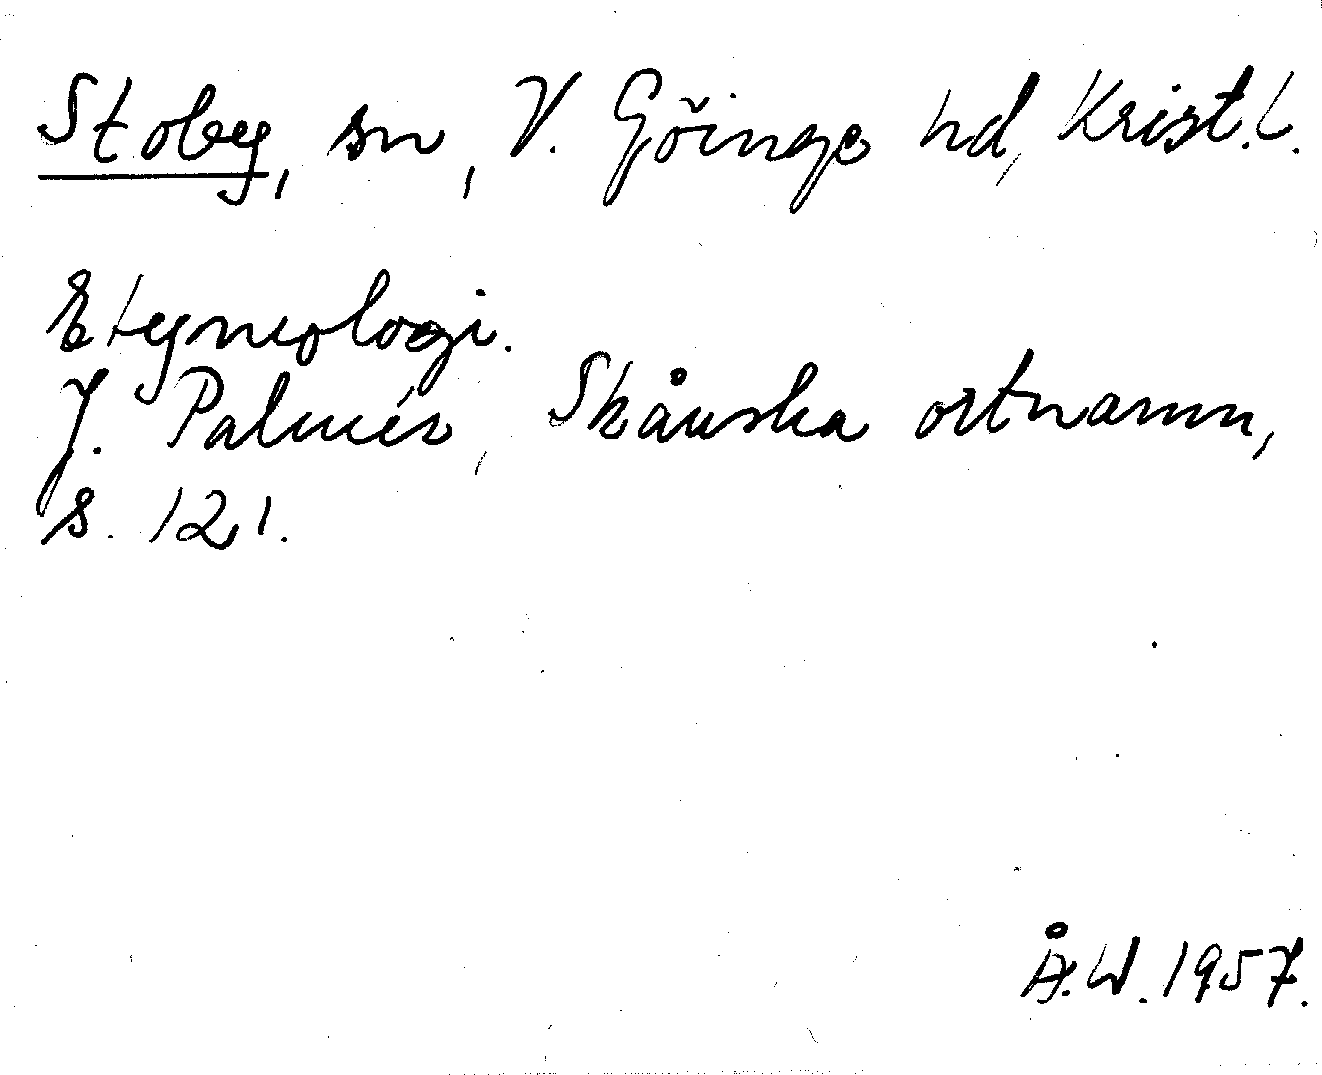 Stoby, sn, V. Göinge hd, Krist.l.
Etymologi.
J. Palmér, Skånska ortnamn,
s. 121.
Å.W. 1957.